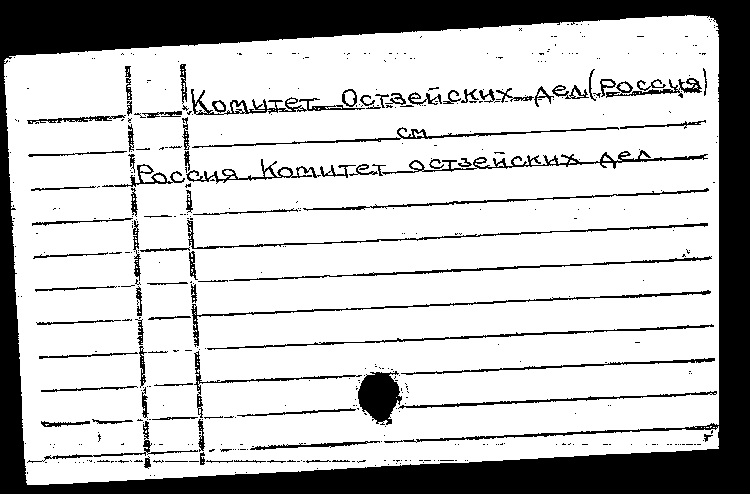 Комитет Остзейских дел (Россия)
см
Россия. Комитет остзейских дел